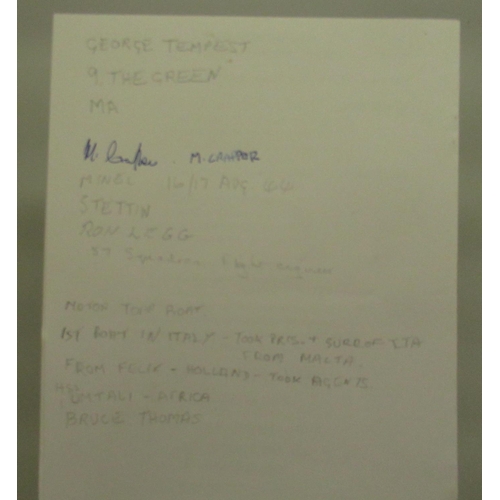 GEORGE TEMPEST
9. THE GREEN
MA
M. CAMPER
16/17 AUG 44
STETTIN
RON LEGG
57 Squadron Flight engineer
MOTOR TORP BOAT.
1ST BOAT IN ITALY - TOOK PRIS. + SURR OF ITA
FROM MALTA
FROM FELIX - HOLLAND - TOOK AGENTS
UMTALI - AFRICA
BRUCE THOMAS